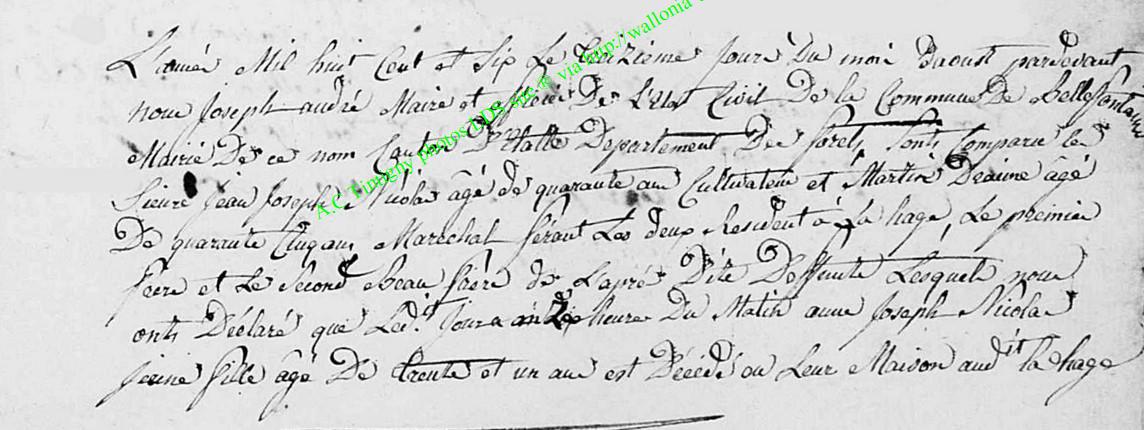 L'année Mil huit Cent et Six Le treizieme Jour Du mois daoust pardevant
nous Joseph andré Maire et officier De L'Etat Civil De la Commune De Bellefontaine
Mairie De ce nom Canton D'Etalle Departement Des forets, Sont Comparu les
Sieurs Jean Joseph Nicolas âgé de quarante ans Cultivateur et Martin Deaume âgé
De quarante Cinq ans Marechal férant Les deux Resident à la hage, Le premier
frere et Le Second Beau frére de L'aprés Dite Deffunte Lesquels nous
onts Déclaré que Led.it Jour a heure Du Matin anne Joseph Nicolas
jeune fille âgé De trente et un ans est Décédé en Leur Maison audit la hage
A.C. Tintigny photos LDS via http://wallonia